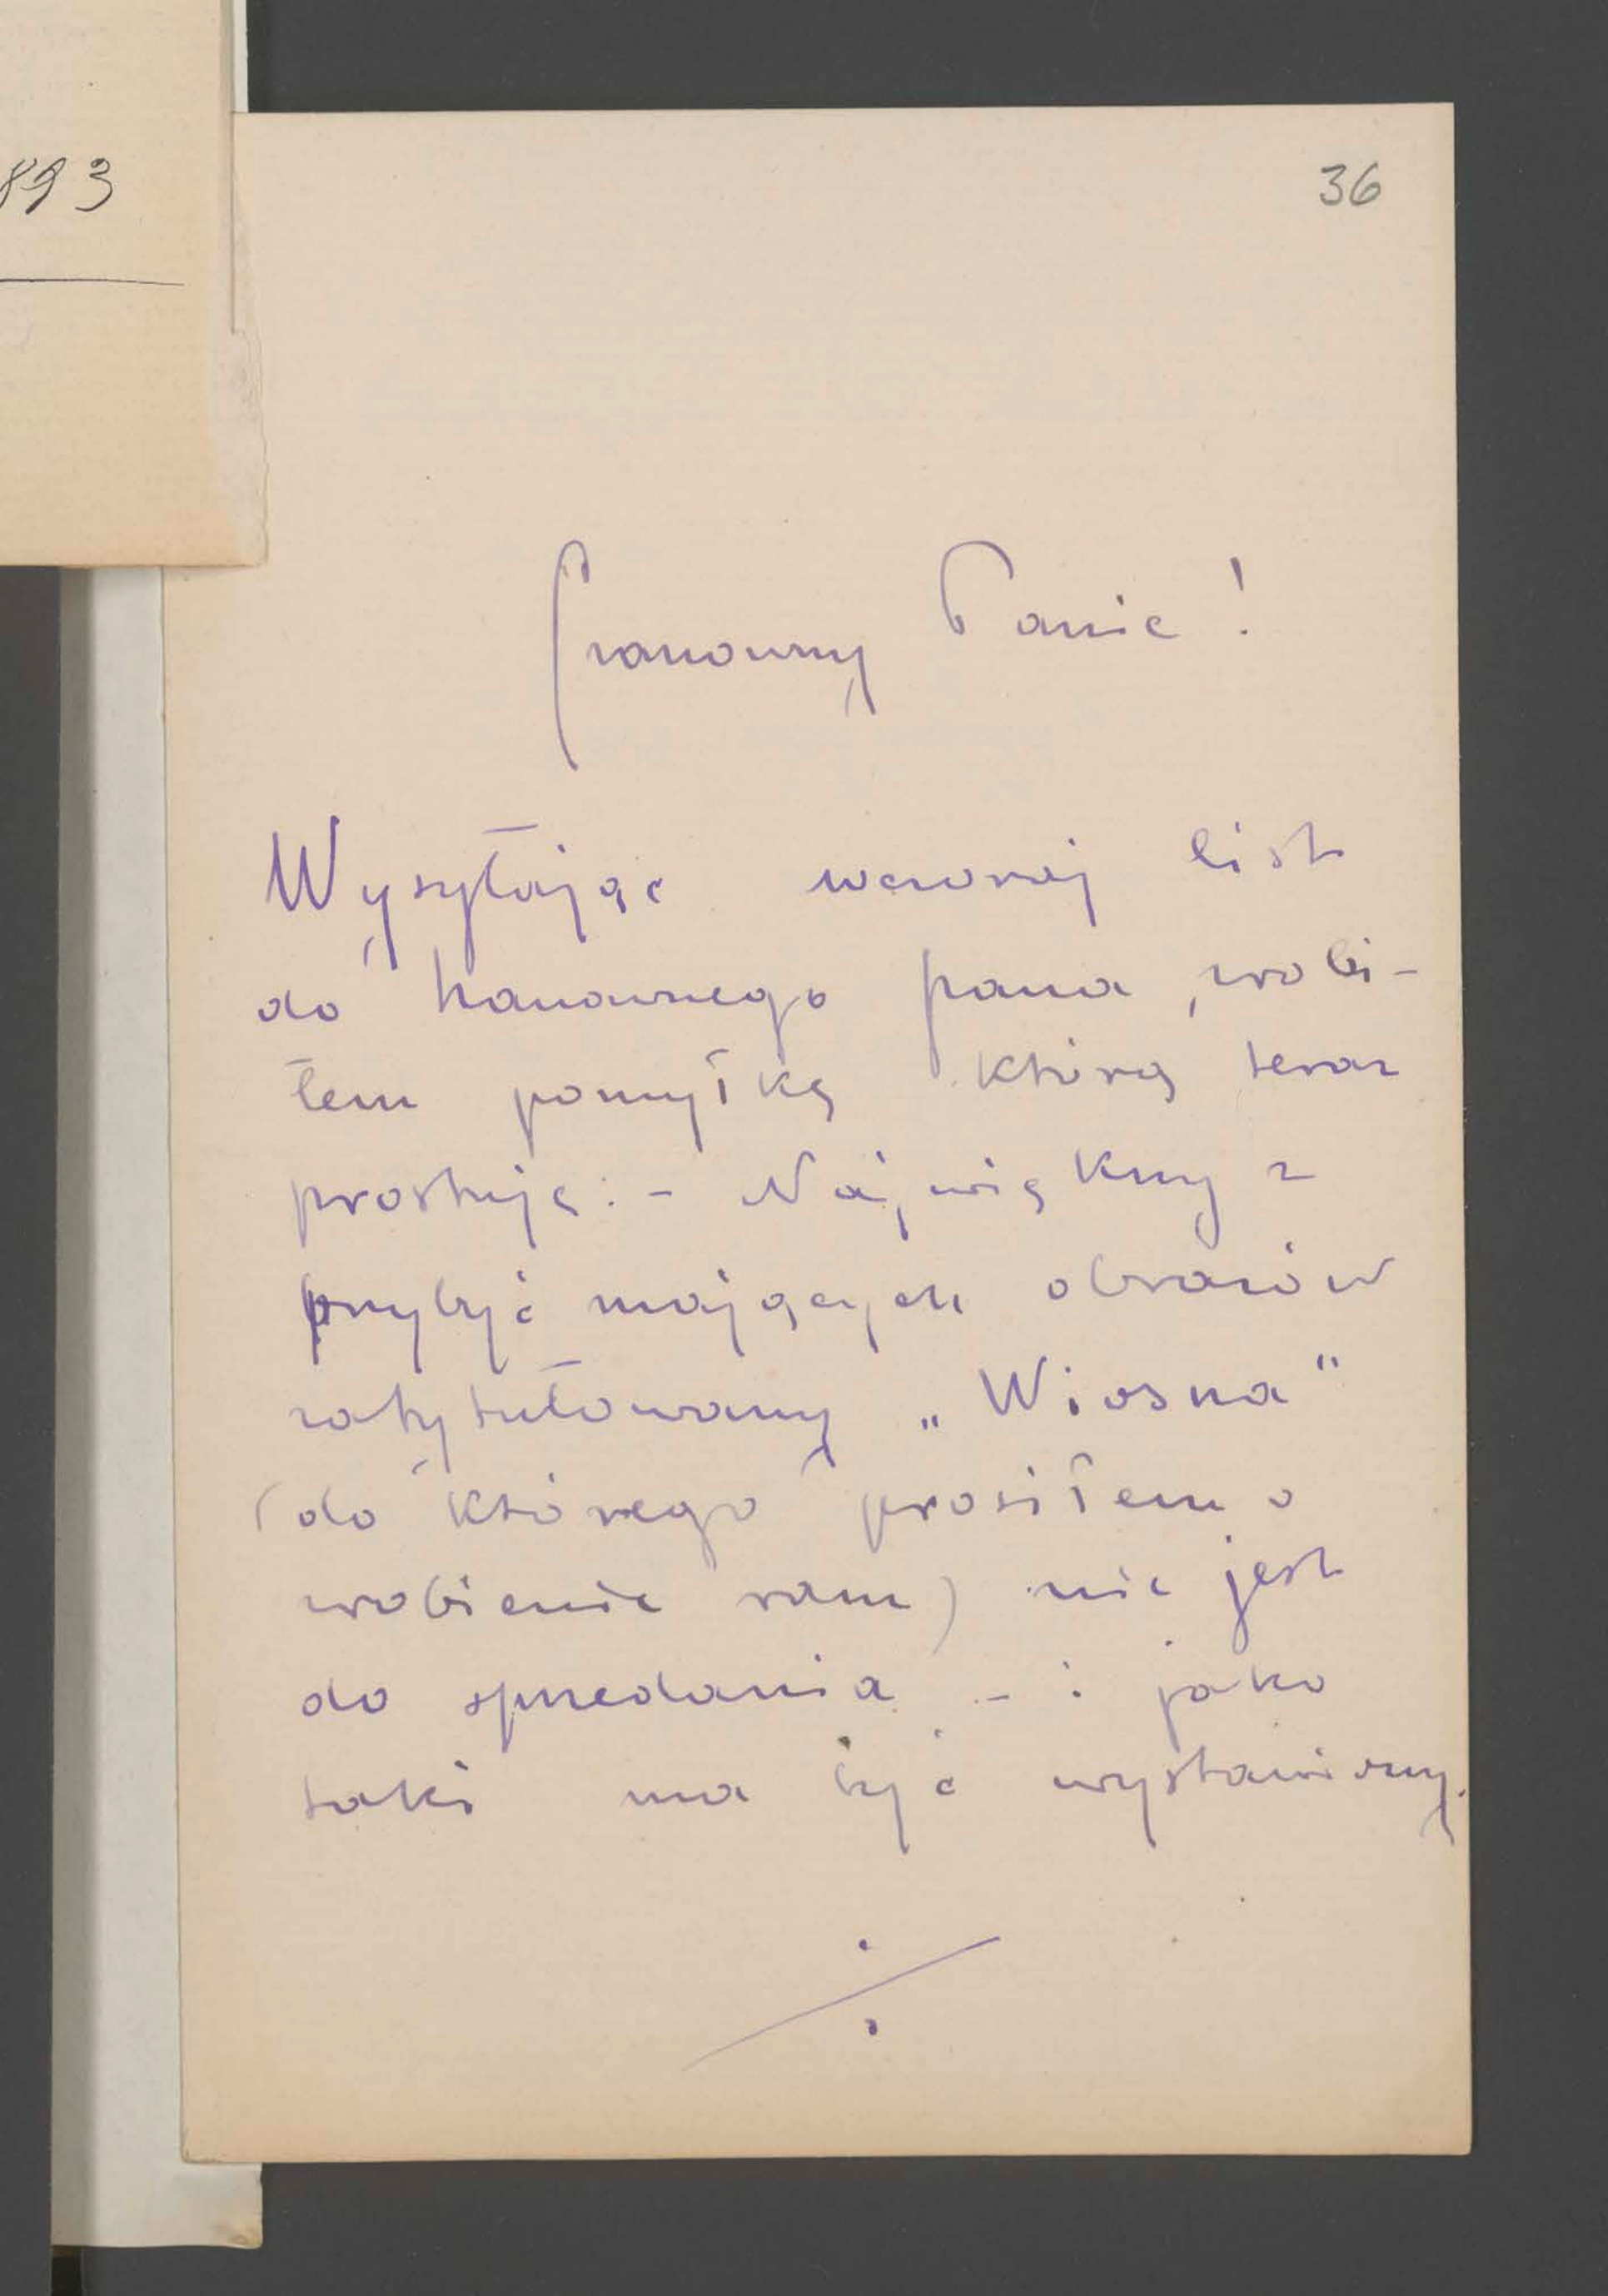 893
36
Szanowny Panie!
Wysyłając wczoraj list
do szanownego pana, zrobi-
łem pomyłkę którą teraz
prostuję: - Największy z
przybyć mających obrazów
zatytułowany „Wiosna"
(do którego prosiłem o
zrobienie ram) nie jest
do sprzedania - i jako
taki ma być wystawiony.